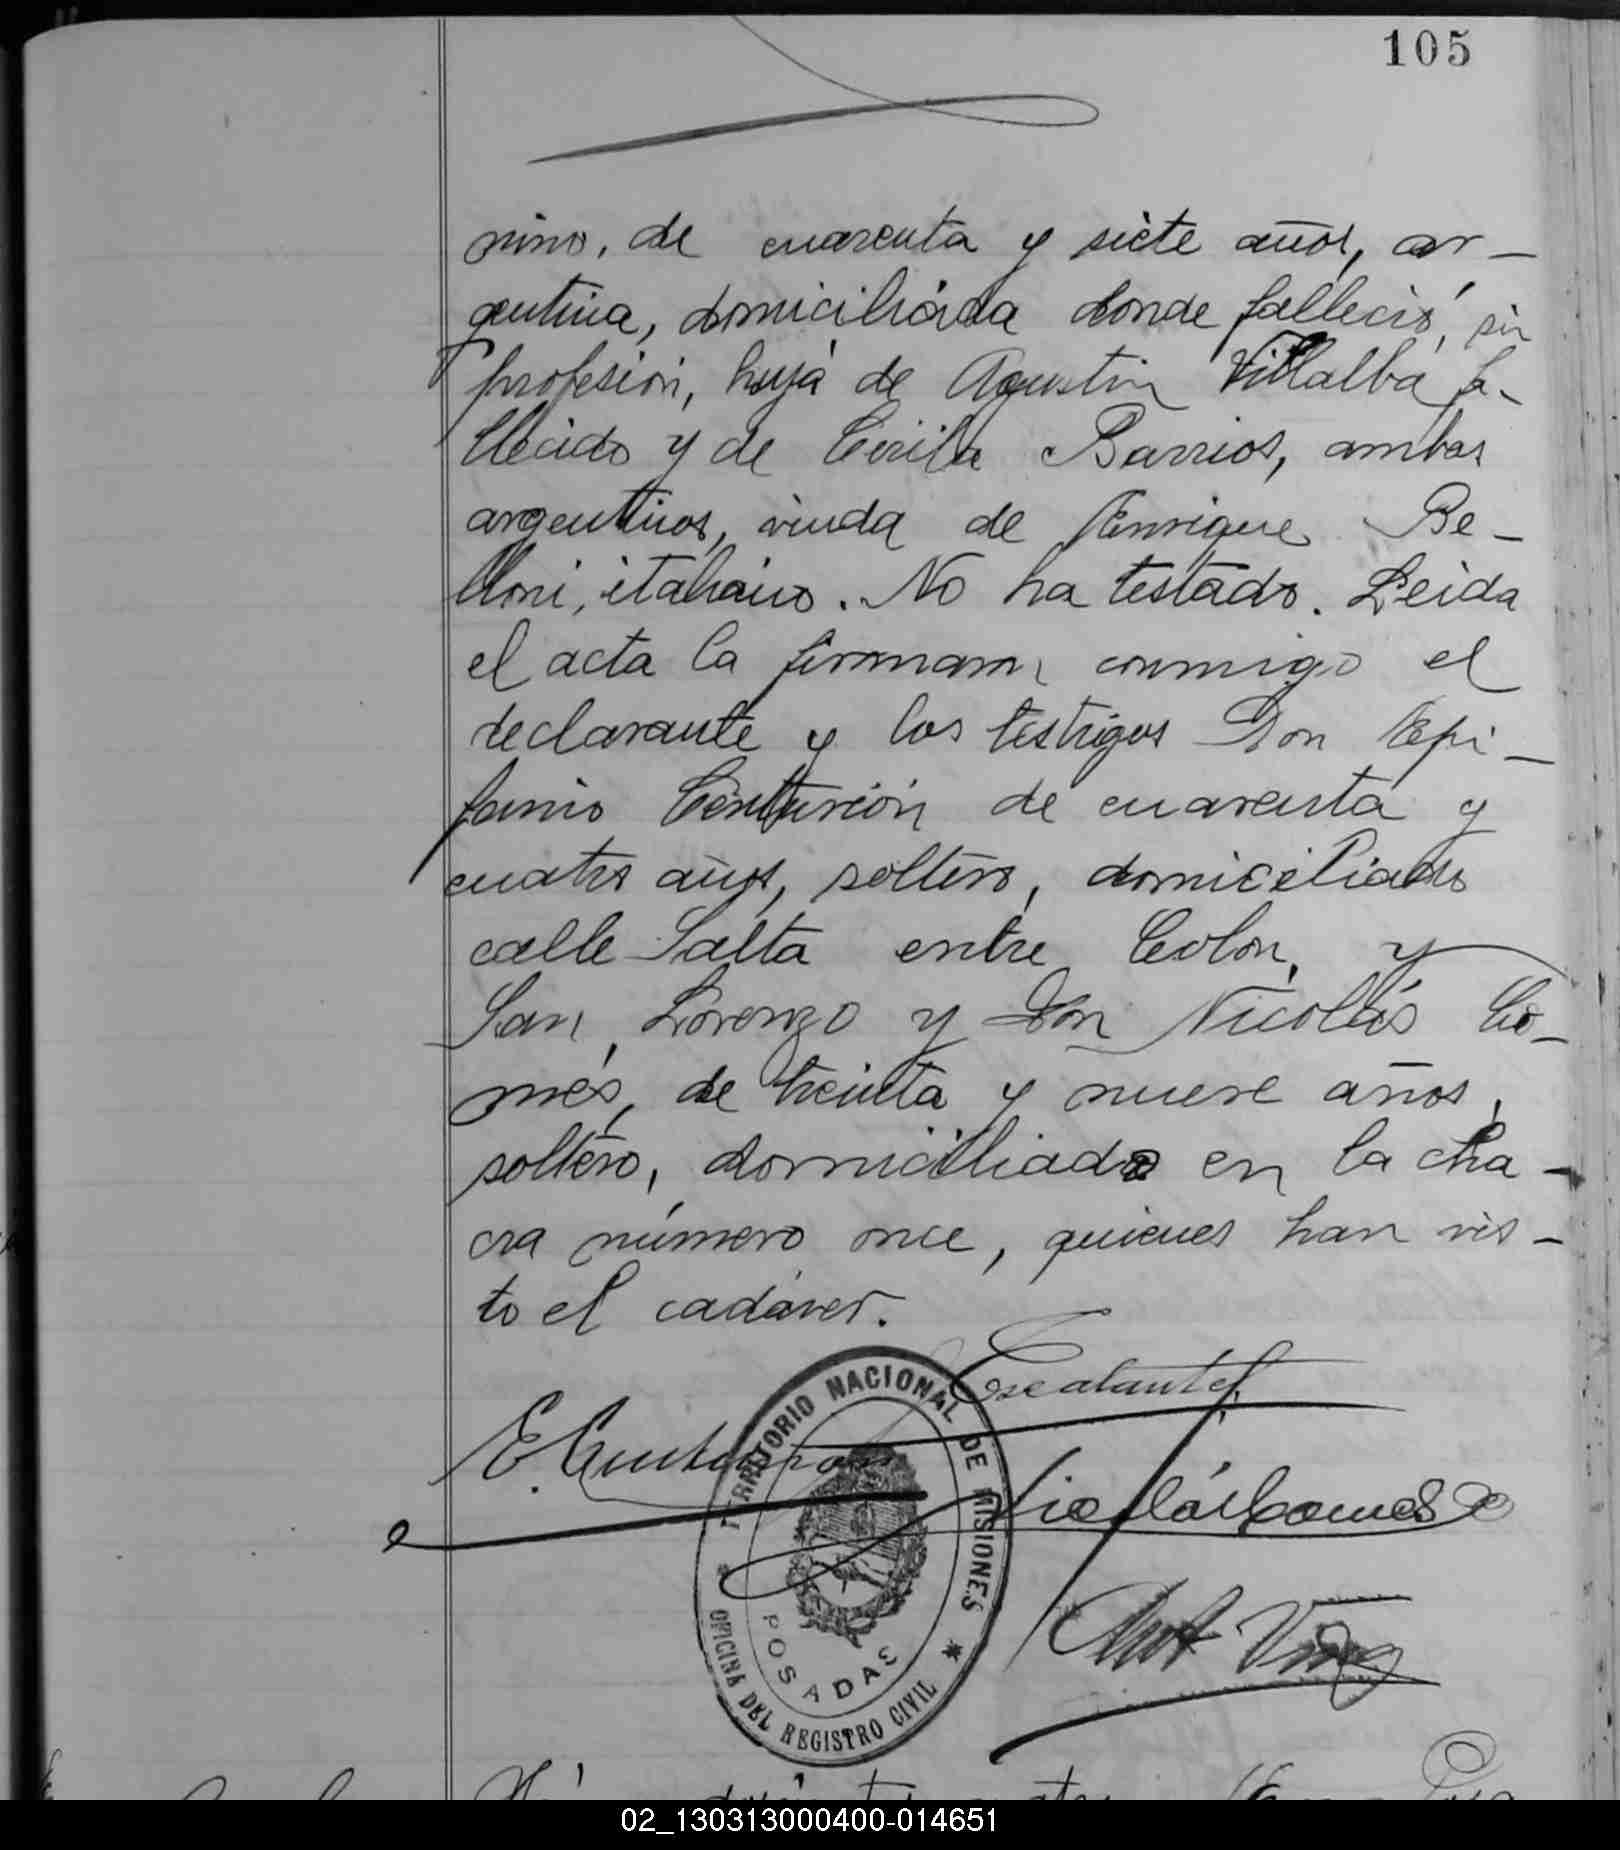 105
nino, de cuarenta y siete años, ar-
gentina, domiciliada donde falleció, sin
profesión, hija de Agustin Villalba fa-
llecido y de Cirila Barrios, ambos
argentinos, viuda de Enrique Be-
lloni, italiano. No ha testado. Leida
el acta la firmam conmigo el
declarante y los testigos Don Epi-
fanio Centurión de cuarenta y
cuatro años, soltero, domiciliado
calle Salta entre Colon y
San Lorenzo y Don Nicolás Go-
més, de treinta y nueve años,
soltero, domiciliado en la cha-
cra número once, quienes han vis-
to el cadáver.
Escalante
E. Centurión
Nicolás Gomes
TERRITORIO NACIONAL DE MISIONES
OFICINA DEL REGISTRO CIVIL
POSADAS
02_130313000400-014651